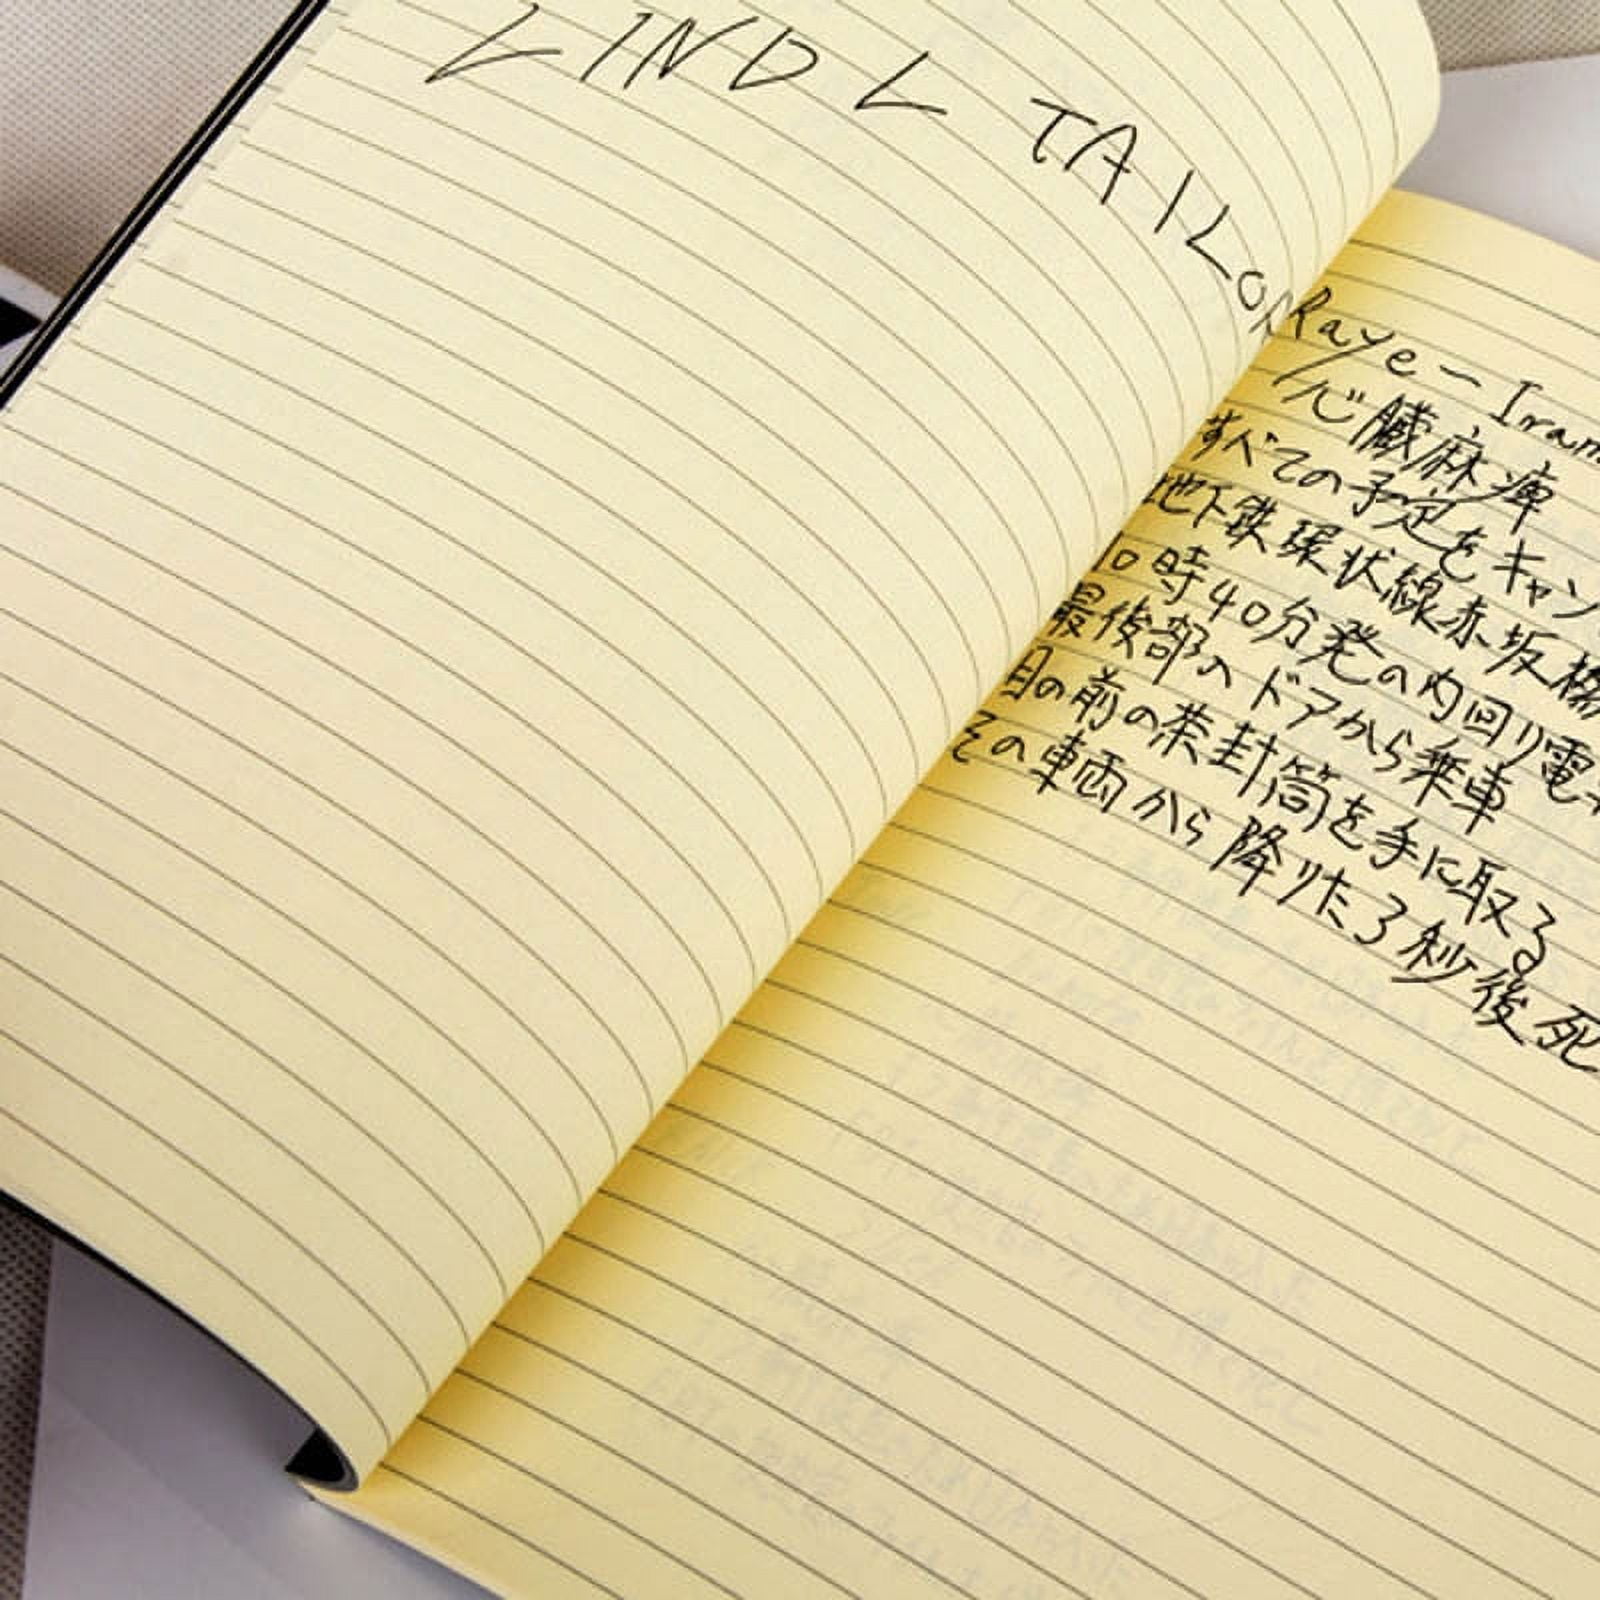 LIND L TAILOR
Raye—Iram
心臓麻痺
すべての予定をキャン
地下鉄環状線赤坂橋
10時40分発の内回り電
最後部のドアから乗車
目の前の茶封筒を手に取る
その車両から降りた3秒後死